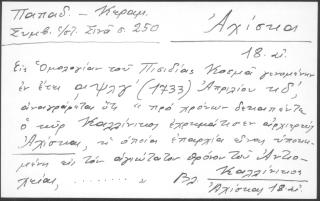 Παπαδ. - Κεραμ.
Συμβ. ἱστ. Σινᾶ σ. 250
Ἀχίσκα
18. αἰ.
Εἰς Ὁμολογίαν τοῦ Πισιδίας Κοσμᾶ γενομένην
ἐν ἔτει αψλγʹ (1733) Ἀπριλίου κδʹ,
ἀναγράφεται ὅτι "πρὸ χρόνων δεκαπέντε
ὁ κὺρ Καλλίνικος ἐχρημάτισεν ἀρχιερεὺς
Ἀχίσκας, ἡ ὁποία ἐπαρχία εἶναι ὑποκει-
μένη εἰς τὸν ἁγιώτατον θρόνον τοῦ Ἀντιο-
χείας, ........ " Βλ Καλλίνικος
Ἀχίσκας 18 αἰ.